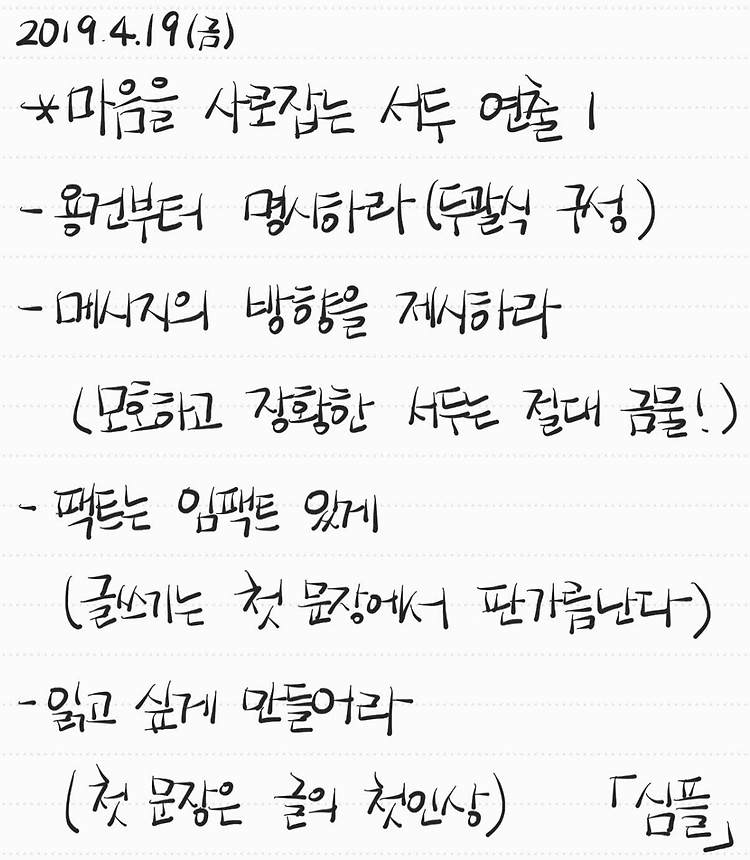 2019.4.19(금)
*마음을 사로잡는 서두 연출 1
- 용건부터 명시하라(두괄식 구성)
- 메시지의 방향을 제시하라
(모호하고 장황한 서두는 절대 금물!)
- 팩트는 임팩트 있게
(글쓰기는 첫 문장에서 판가름난다)
- 읽고 싶게 만들어라
(첫 문장은 글의 첫인상) 「심플」